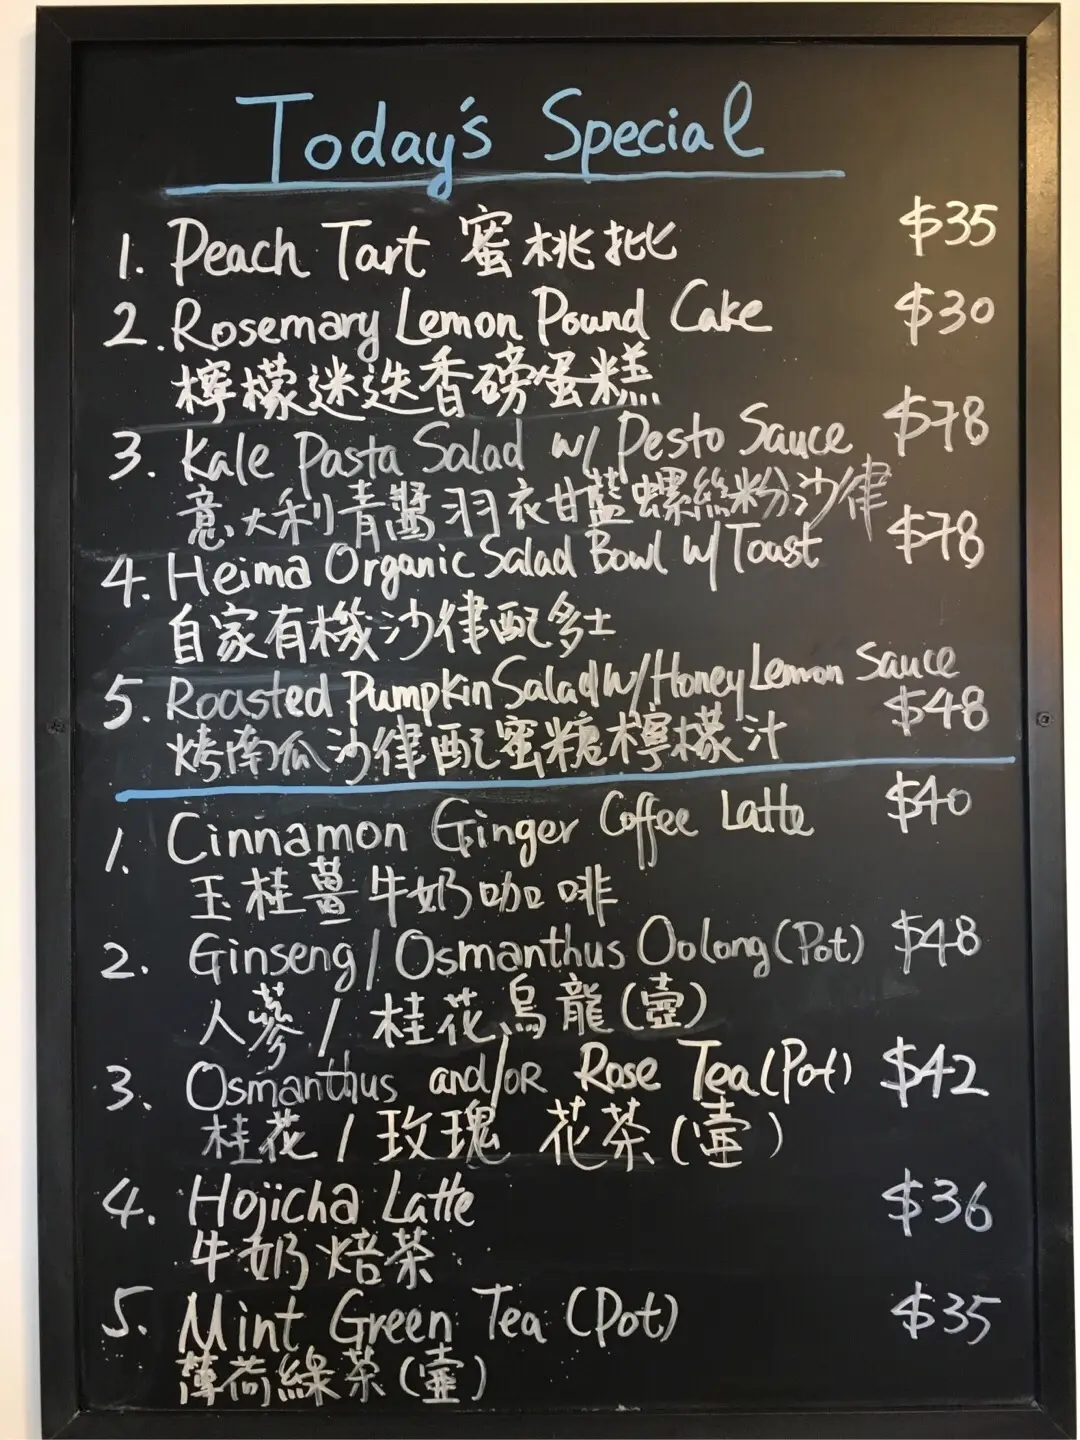 Today's Special
1. Peach Tart 蜜桃批 $35
2. Rosemary Lemon Pound Cake $30
檸檬迷迭香磅蛋糕
3. Kale Pasta Salad w/ Pesto Sauce $78
意大利青醬羽衣甘藍螺絲粉沙律
4. Heima Organic Salad Bowl w/ Toast $78
自家有機沙律配多士
5. Roasted Pumpkin Salad w/ Honey Lemon Sauce
烤南瓜沙律配蜜糖檸檬汁 $48
1. Cinnamon Ginger Coffee Latte $40
玉桂薑牛奶咖啡
2. Ginseng / Osmanthus Oolong (Pot) $48
人蔘 / 桂花烏龍 (壺)
3. Osmanthus and/or Rose Tea (Pot) $42
桂花 / 玫瑰 花茶 (壺)
4. Hojicha Latte $36
牛奶焙茶
5. Mint Green Tea (Pot) $35
薄荷綠茶 (壺)